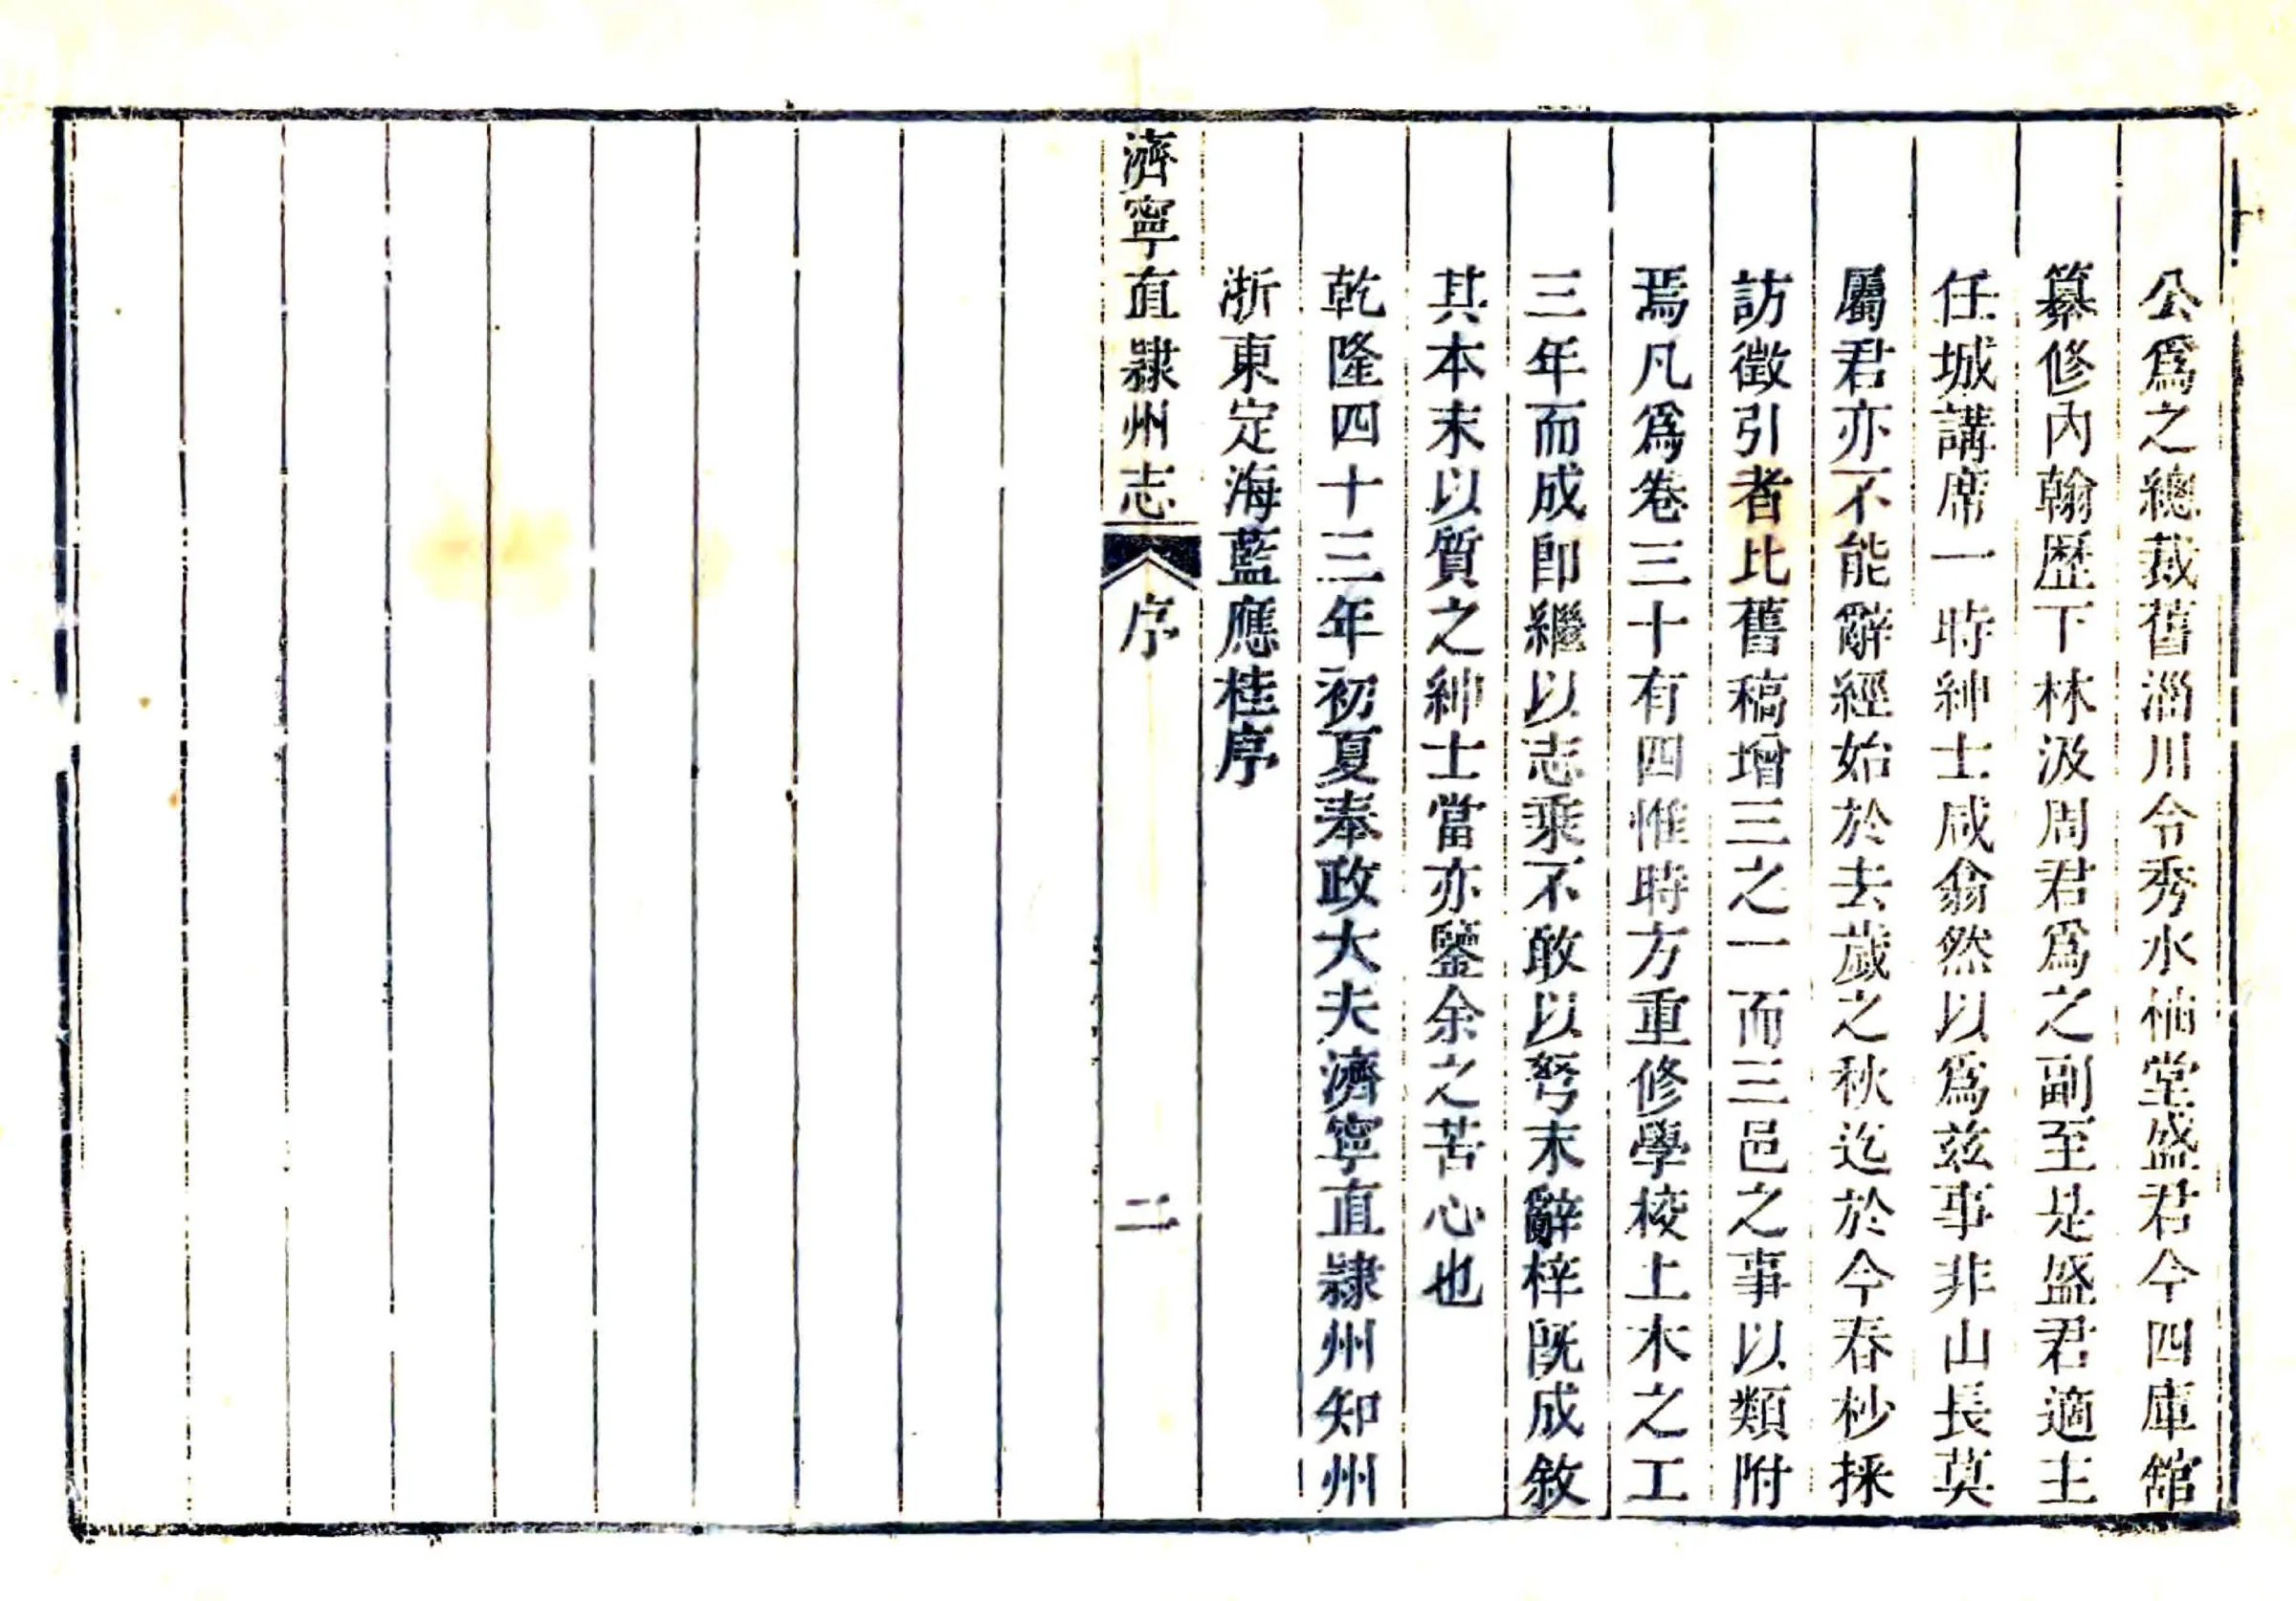 公爲之總裁舊淄川令秀水柚堂盛君今四庫舘
纂修內翰歷下林汲周君爲之副至是盛君適主
任城講席一時紳士咸翕然以爲兹事非山長莫
屬君亦不能辭經始於去歲之秋迄於今春杪採
訪徵引者比舊稿增三之一而三邑之事以類附
焉凡爲卷三十有四惟時方重修學校土木之工
三年而成卽繼以志乘不敢以弩末辭梓旣成敘
其本末以質之紳士當亦鑒余之苦心也
乾隆四十三年初夏奉政大夫濟寧直隸州知州
浙東定海藍應桂序
濟寧直隸州志 序 二